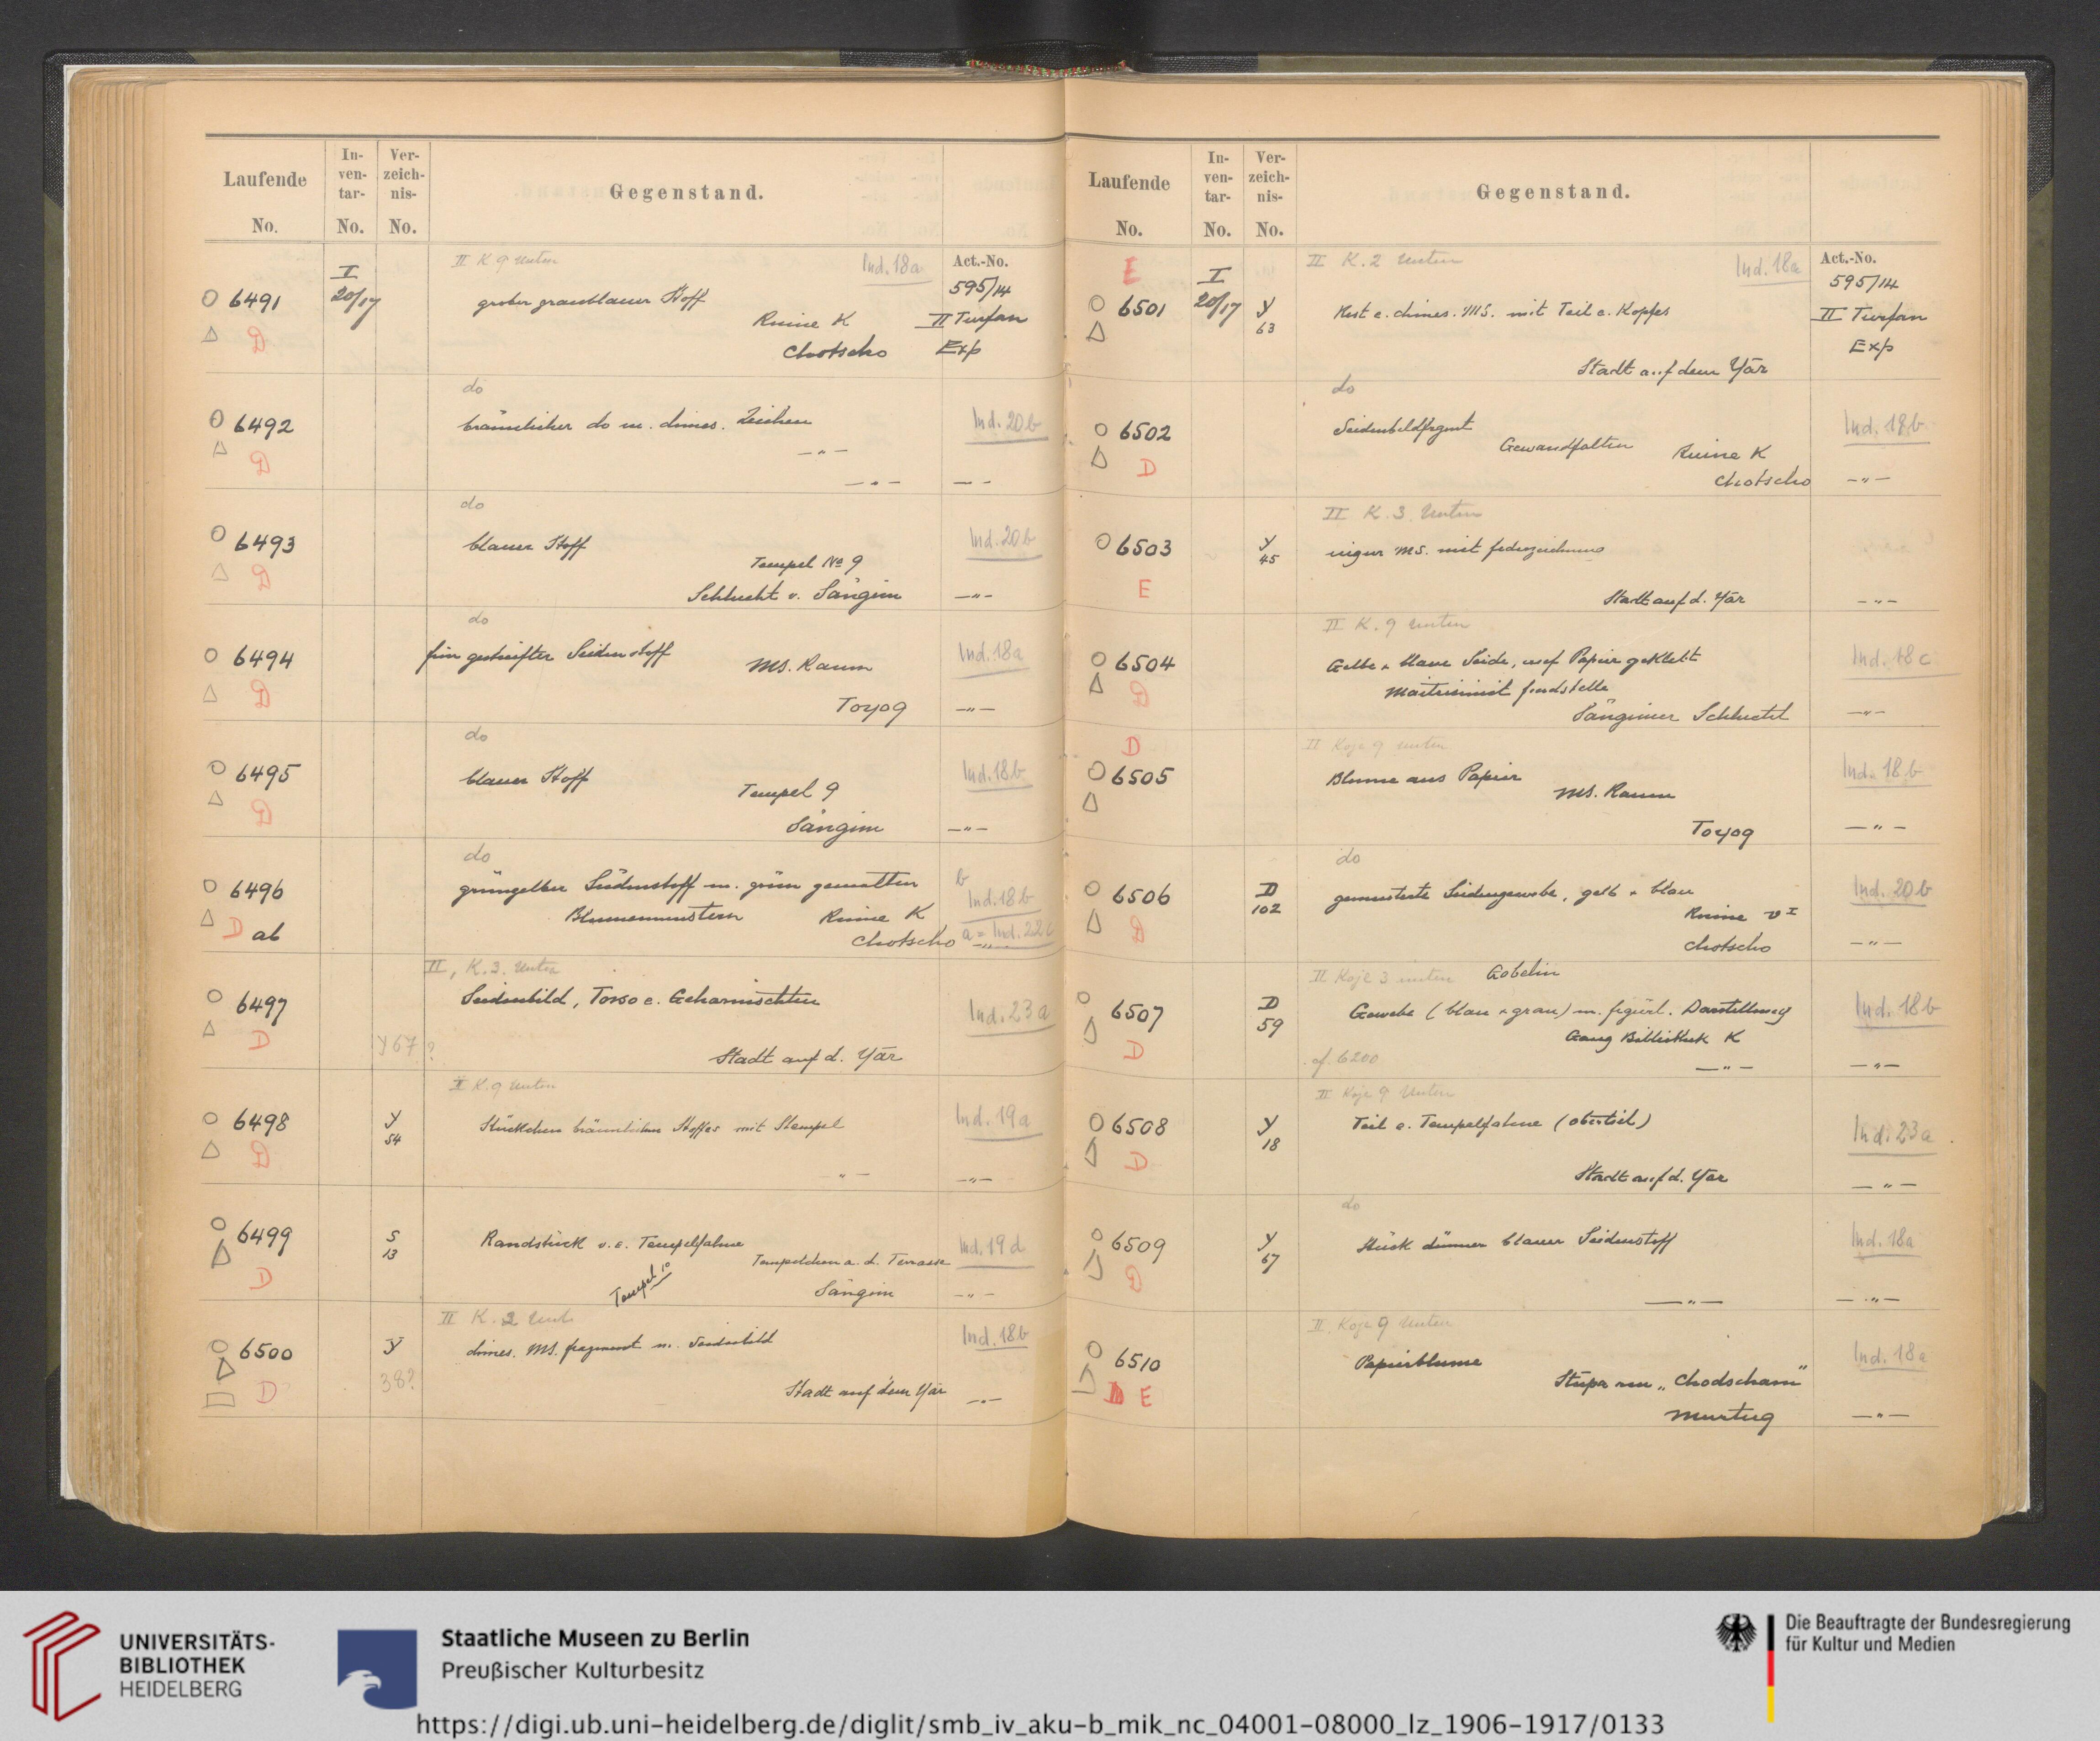 Laufende No.
In-ven-tar- No.
Ver-zeich-nis- No.
Gegenstand.
I
20/17
II K 9 Unten
Ind. 18a
Act.-No.
595/14
6491
grober graublauer Stoff
Ruine K
II Turfan
D
Chotscho
Exp
do
6492
bräunlicher do m. chines. Zeichen
Ind. 20b
D
—"—
—"— —"—
do
6493
blauer Stoff
Ind. 20b
D
Tempel No 9
Schlucht v. Sängim —"—
do
6494
fein gestreifter Seidenstoff
Ind. 18a
D
MS. Raum
Toyoq —"—
do
6495
blauer Stoff
Ind. 18b
D
Tempel 9
Sängim —"—
do
6496
grüngelber Seidenstoff m. grün gemalten
b
Ind. 18b
D ab
Blumenmustern Ruine K
Chotscho
a = Ind. 22
II, K. 3. Unten
6497
Seidenbild, Torso e. Geharnischten
Ind. 23a
D
Y 67 ?
Stadt auf d. Yār
II K. 9 Unten
6498
Y
54
Stückchen bräunlichen Stoffes mit Stempel
Ind. 19a
D
"— —"—
6499
S
13
Randstück v. e. Tempelfahne
Ind. 19d
Tempelchen a. d. Terrasse
D
Tempel 10
Sängim —"—
II K. 2 Unt.
6500
Y
38?
chines. MS. fragment m. Seidenbild
Ind. 18b
D
Stadt auf dem Yār —"—
Laufende No.
In-ven-tar- No.
Ver-zeich-nis- No.
Gegenstand.
E
I
20/17
II K. 2 Unten
Ind. 18a
Act.-No.
595/14
6501
Y
63
Rest e. chines. MS. mit Teil e. Kopfes
II Turfan
Exp
Stadt auf dem Yār
do
6502
Seidenbildfrgmt
Ind. 18b
D
Gewandfalten Ruine K
Chotscho —"—
II K. 3. Unten
6503
Y
45
uigur MS. mit federzeichnung
E
Stadt auf d. Yār —"—
II K. 9 Unten
6504
Gelbe + blaue Seide, auf Papier geklebt
Ind. 18c
D
Maitrisimit fundstelle
Sängimer Schlucht —"—
II Koje 9 unten
D
6505
Blume aus Papier
Ind. 18b
MS. Raum
Toyoq —"—
do
6506
D
102
gemusterte Seidengewebe, gelb + blau
Ind. 20b
D
Ruine
Chotscho —"—
II Koje 3 unten Gobelin
6507
D
59
Gewebe (blau + grau) m. figürl. Darstellung
Ind. 18b
D
Gang Bibliothek K
cf. 6200
—"— —"—
II Koje 9 Unten
6508
Y
18
Teil e. Tempelfahne (oberteil)
Ind. 23a
D
Stadt auf d. Yār —"—
do
6509
Y
67
Stück dünner blauer Seidenstoff
Ind. 18a
D
—"— —"—
II. Koje 9 Unten
6510
Papierblume
Ind. 18a
E
Stūpa "Chodscham"
Murtuq —"—
UNIVERSITÄTS-
BIBLIOTHEK
HEIDELBERG
Staatliche Museen zu Berlin
Preußischer Kulturbesitz
Die Beauftragte der Bundesregierung
für Kultur und Medien
https://digi.ub.uni-heidelberg.de/diglit/smb_iv_aku-b_mik_nc_04001-08000_lz_1906-1917/0133